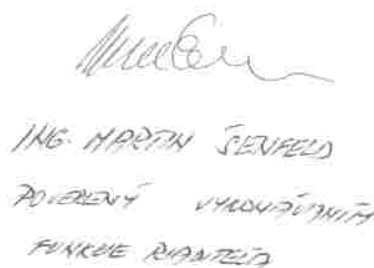 ING. MARTIN ŠENFELD
POVERENÝ VYKONÁVANÍM
FUNKCIE RIADITEĽA